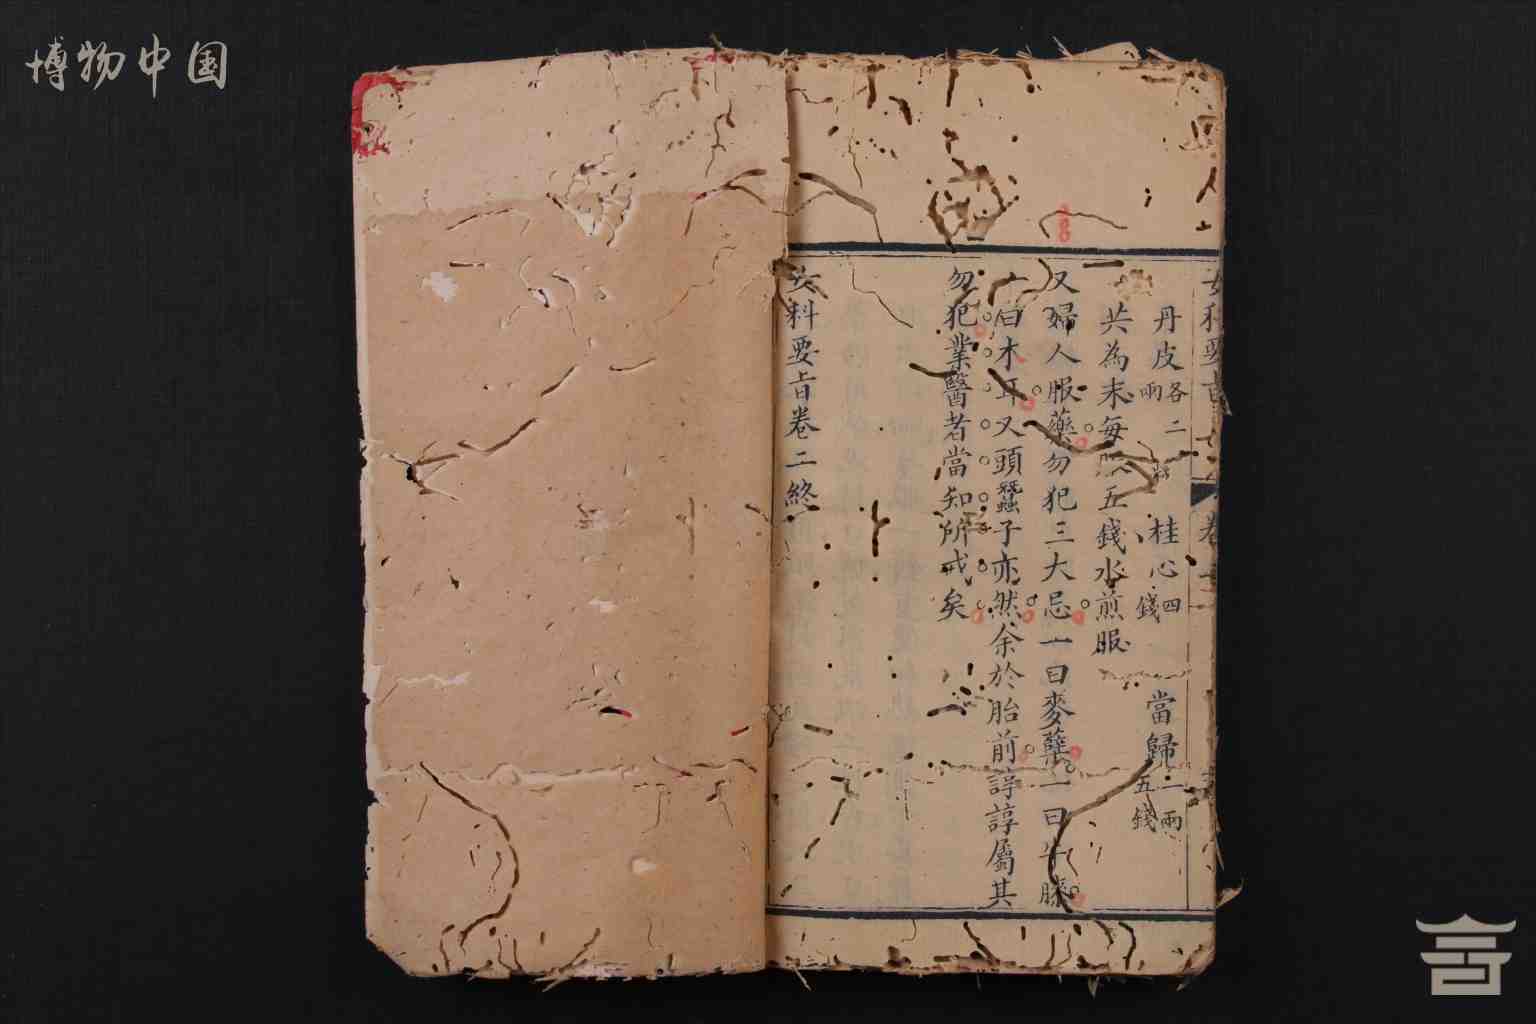 博物中国
女科要旨 卷二
丹皮各二兩 桂心四錢 當歸一兩五錢
共為末每服五錢水煎服
又婦人服藥勿犯三大忌一曰麥蘖一曰牛膝
一曰木耳又頭蠶子亦然余於胎前諄諄屬其
勿犯業醫者當知所戒矣
女科要旨卷二終